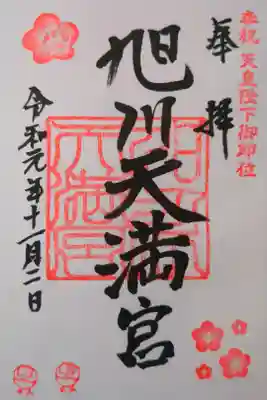 奉祝 天皇陛下御即位
奉拝
旭川天満宮
令和元年十一月二日